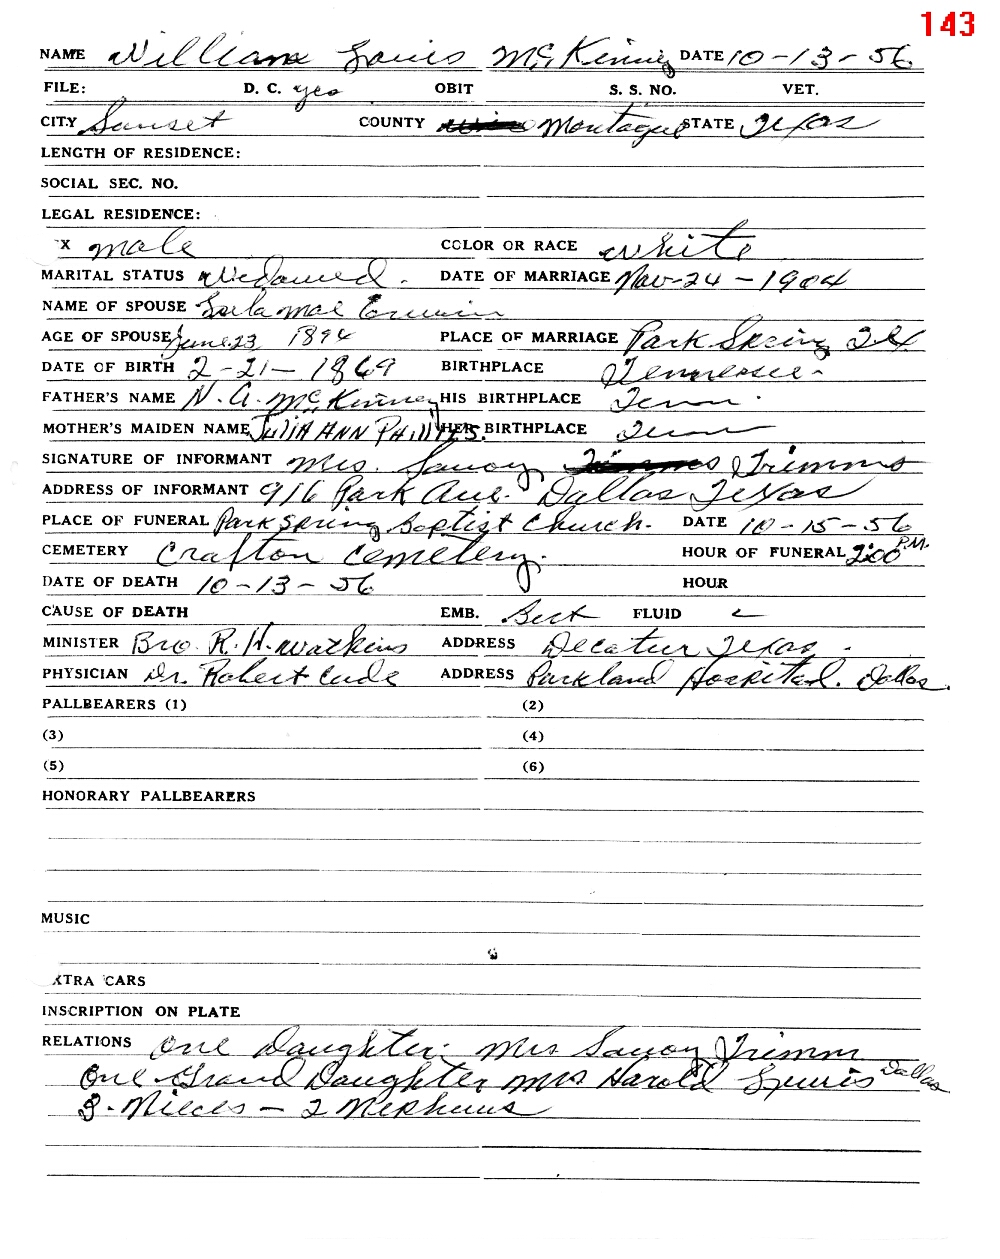 143
NAME William Louis McKinney DATE 10-13-56
FILE: D. C. yes OBIT S. S. NO. VET.
CITY Sunset COUNTY Montague STATE Texas
LENGTH OF RESIDENCE:
SOCIAL SEC. NO.
LEGAL RESIDENCE:
X male COLOR OR RACE white
MARITAL STATUS Widowed. DATE OF MARRIAGE Nov-24-1904
NAME OF SPOUSE Mae
AGE OF SPOUSE June 23 1894 PLACE OF MARRIAGE Park Spring Tex.
DATE OF BIRTH 2-21-1869 BIRTHPLACE Tennessee-
FATHER'S NAME N. A. McKinney HIS BIRTHPLACE Tenn.
MOTHER'S MAIDEN NAME JULIA ANN PHILLIPS. HER BIRTHPLACE Tenn
SIGNATURE OF INFORMANT Mrs. Savoy Trimms
ADDRESS OF INFORMANT 916 Park Ave. Dallas Texas
PLACE OF FUNERAL Park Spring Baptist Church. DATE 10-15-56
CEMETERY Crafton Cemetery. HOUR OF FUNERAL 2:00 P.M.
DATE OF DEATH 10-13-56 HOUR
CAUSE OF DEATH EMB. Bert FLUID
MINISTER Bro. R. H. Watkins ADDRESS Decatur Texas.
PHYSICIAN Dr. Robert Cude ADDRESS Parkland Hospital. Dallas.
PALLBEARERS (1) (2)
(3) (4)
(5) (6)
HONORARY PALLBEARERS
MUSIC
XTRA CARS
INSCRIPTION ON PLATE
RELATIONS One Daughter. Mrs Savoy Trimm
One Grand Daughter Mrs Harold Dallas
3-Nieces - 2 Nephews